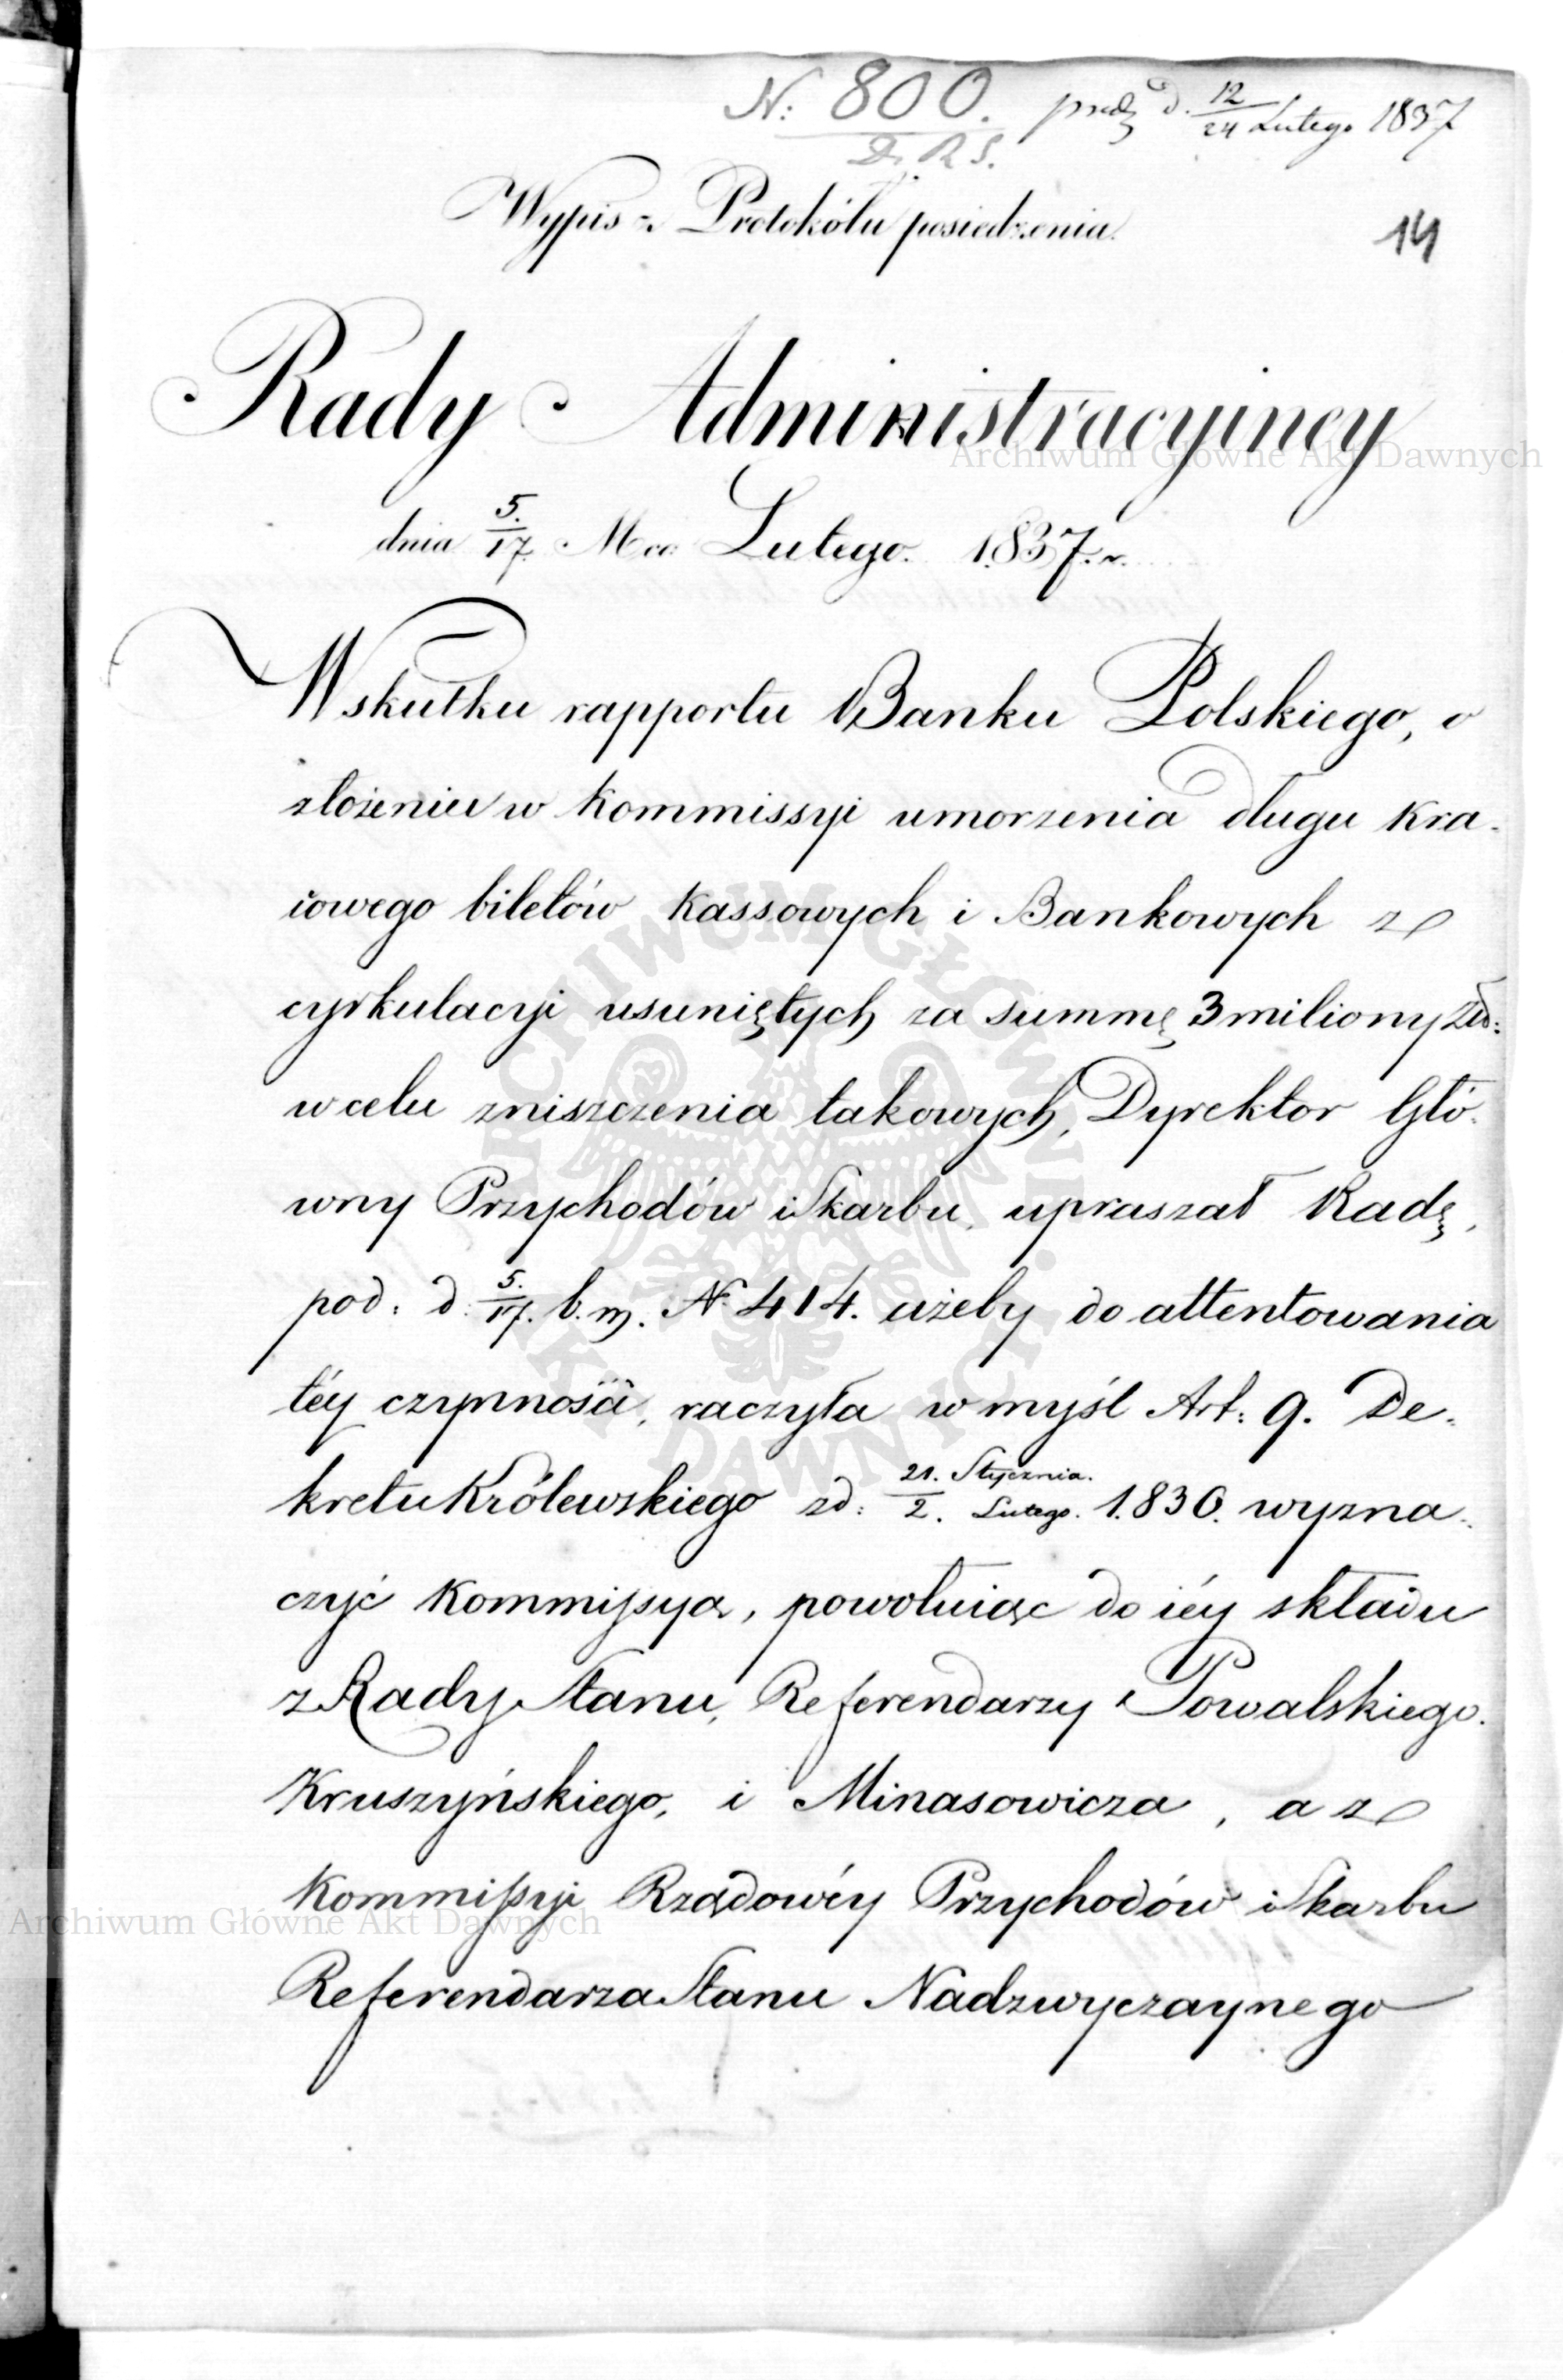 N: 800. prez d. 12/24 Lutego 1837
D. R. S.
Wypis z Protokółu posiedzenia.
14
Rady Administracyiney
dnia 5./17. Mca Lutego. 1837. r.
Wskutku rapportu Banku Polskiego, o
złożeniu w Kommissyi umorzenia długu kra-
iowego biletów Kassowych i Bankowych z
cyrkulacyi usuniętych za summę 3 miliony Złt:
w celu zniszczenia takowych, Dyrektor Głó-
wny Przychodów i Skarbu, upraszał Radę,
pod: d: 5./17. b. m. N. 414. ażeby do attentowania
téy czynności, raczyła w myśl Art: 9. De-
kretu Królewskiego zd: 21. Stycznia./2. Lutego. 1.830. wyzna-
czyć Kommissyą, powołuiąc do iéy składu
z Rady Stanu, Referendarzy Powalskiego.
Kruszyńskiego, i Minasowicza, a z
Kommissyi Rządowéy Przychodów i Skarbu
Referendarza Stanu Nadzwyczaynego
Archiwum Główne Akt Dawnych
Archiwum Główne Akt Dawnych